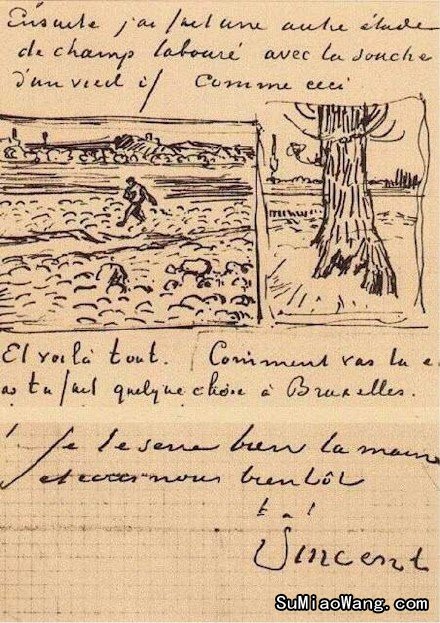 Ensuite j'ai fait une autre étude
de champ labouré avec la souche
d'un vieil if Comme ceci
Et voilà tout. Comment vas tu e
as tu fait quelque chose à Bruxelles.
Je te serre bien la main
et bientôt
t. à t
Vincent
SuMiaoWang.com